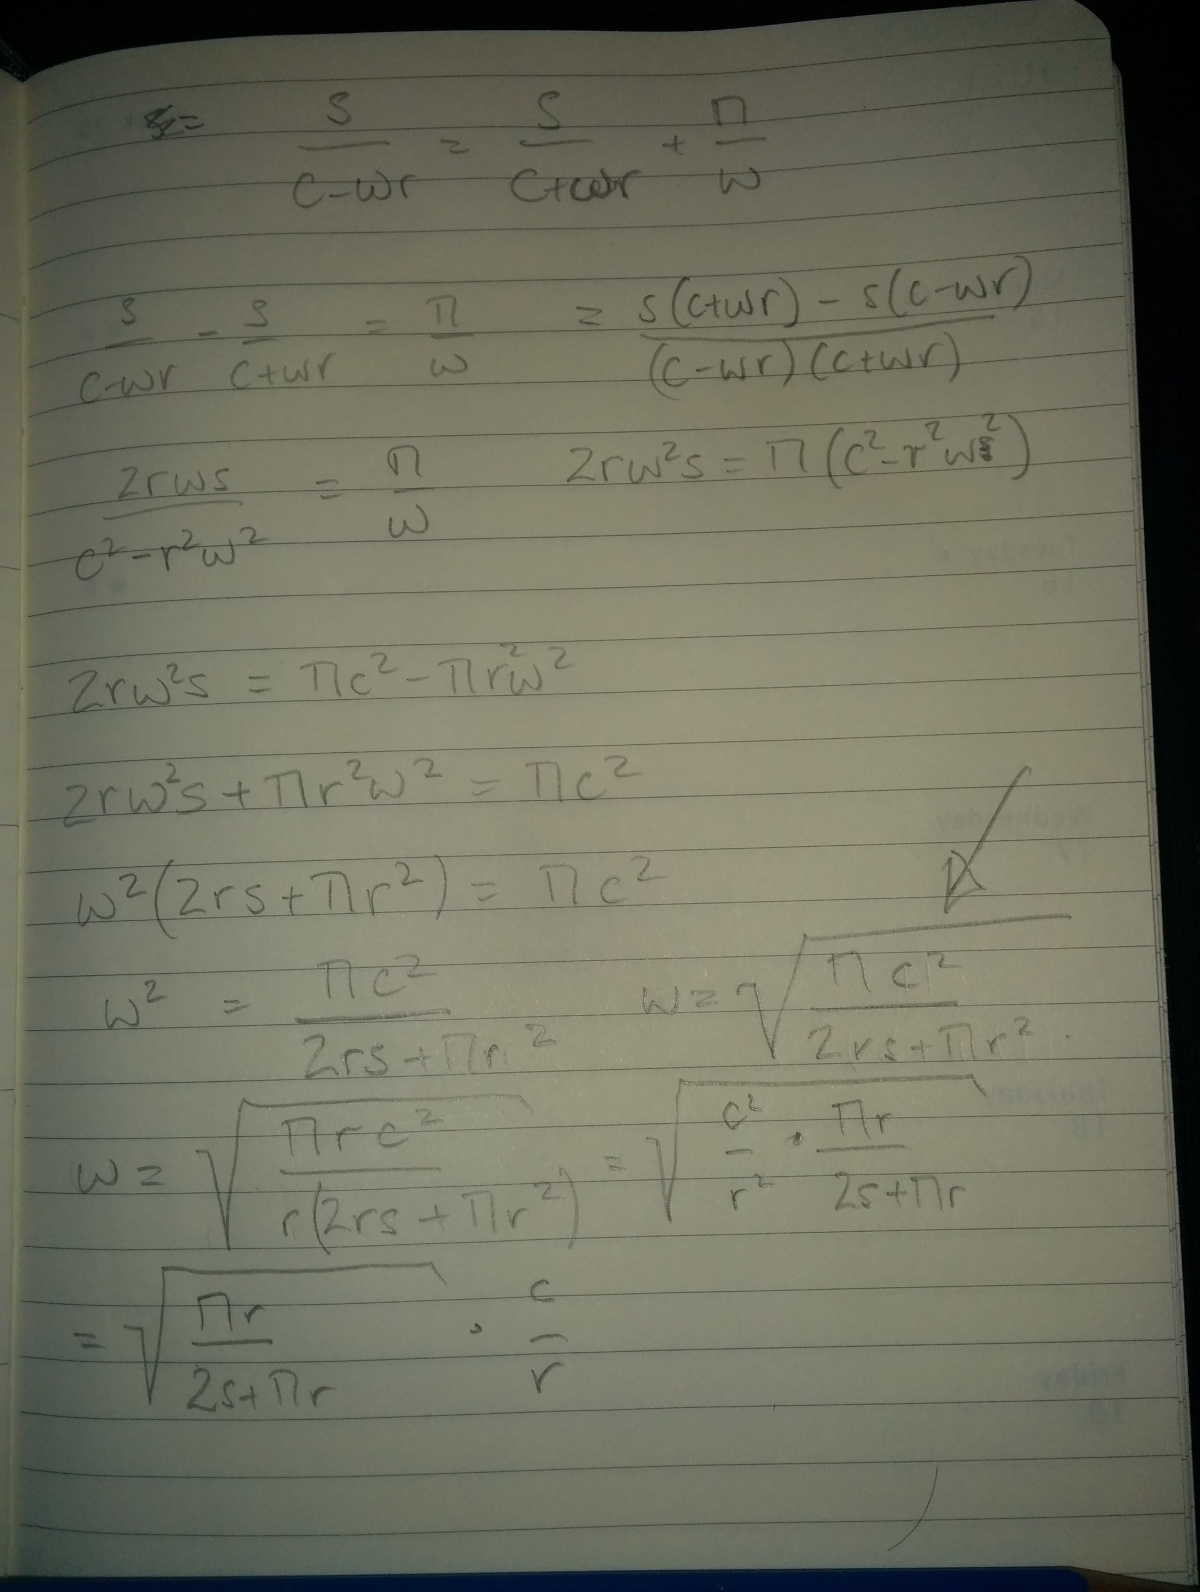 S/(C-wr) = S/(C+wr) + Π/w
S/(C-wr) - S/(C+wr) = Π/w = (s(c+wr) - s(c-wr))/((c-wr)(c+wr))
2rws/(c²-r²w²) = Π/w 2rw²s = Π(c²-r²w²)
2rw²s = Πc² - Πr²w²
2rw²s + Πr²w² = Πc²
w²(2rs + Πr²) = Πc²
w² = Πc²/(2rs + Πr²) w = √(Πc²/(2rs + Πr²)).
w = √(Πrc²/(r(2rs + Πr²))) = √(c²/r² · Πr/(2s+Πr))
= √(Πr/(2s+Πr)) · c/r